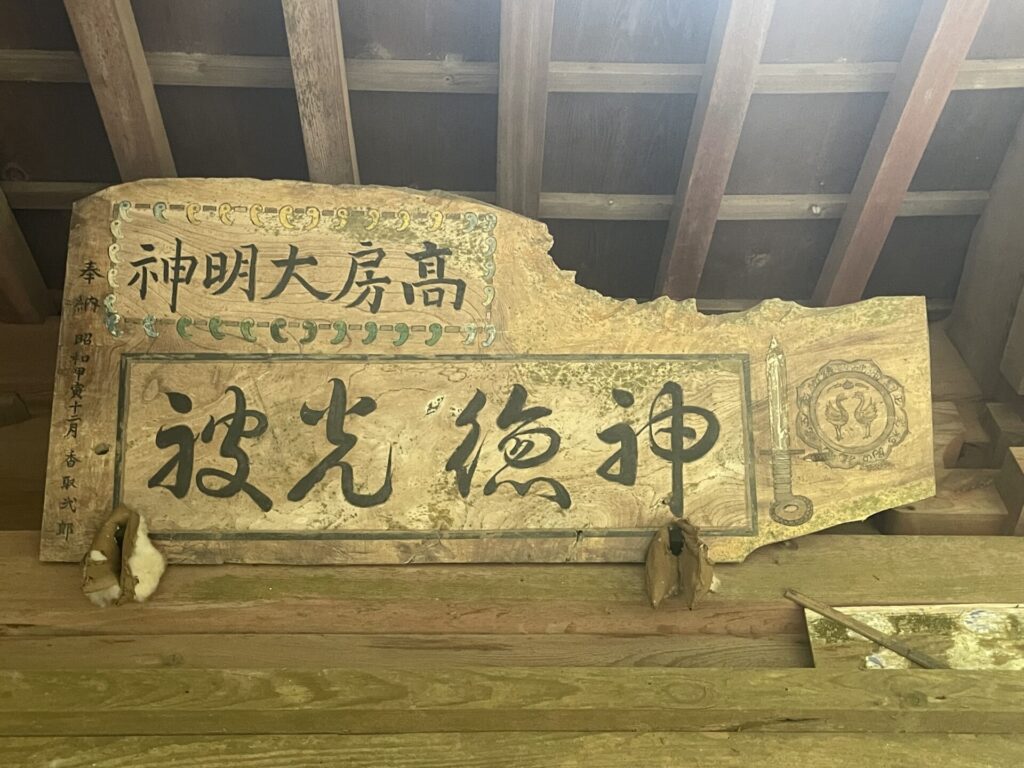 髙房大明神
神徳光被
奉納 昭和甲寅十二月 香取弐郎